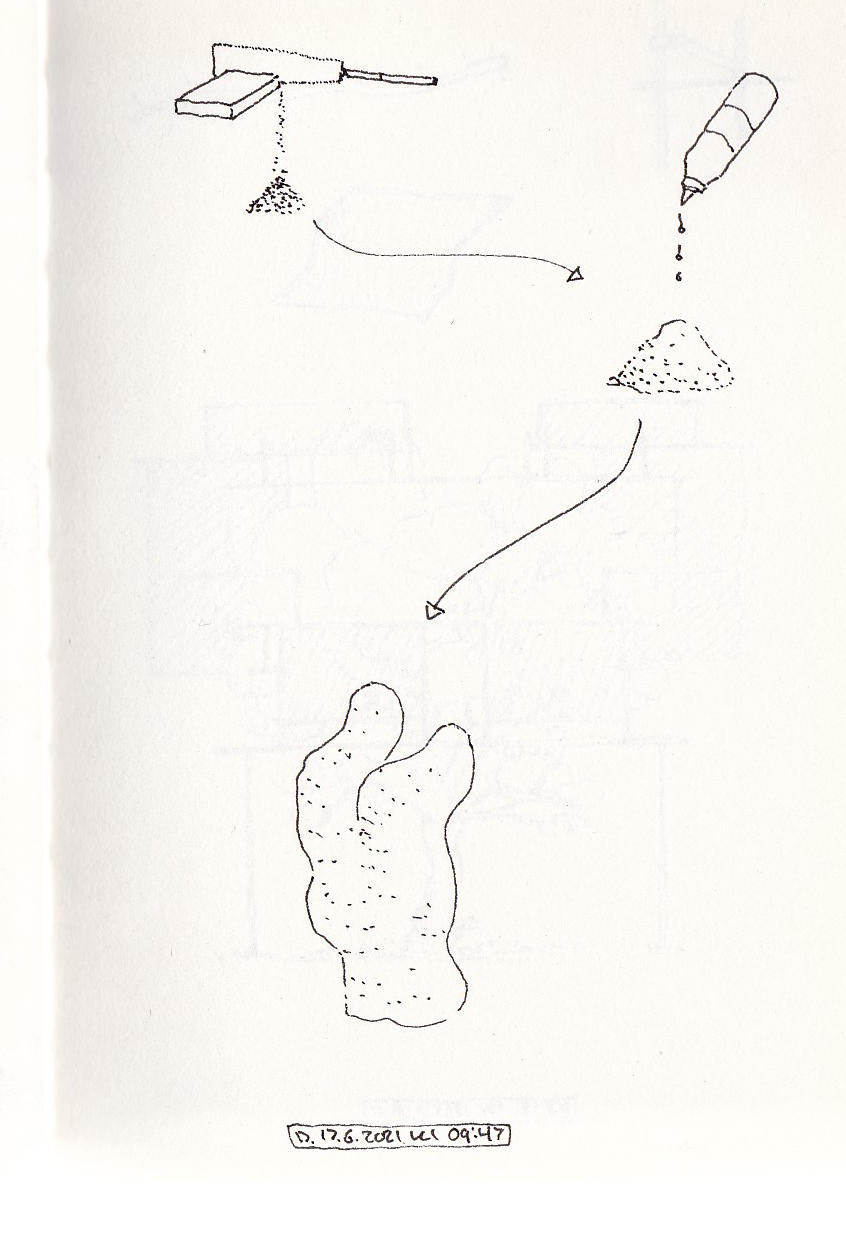 D. 17.6.2021 kl 09:47